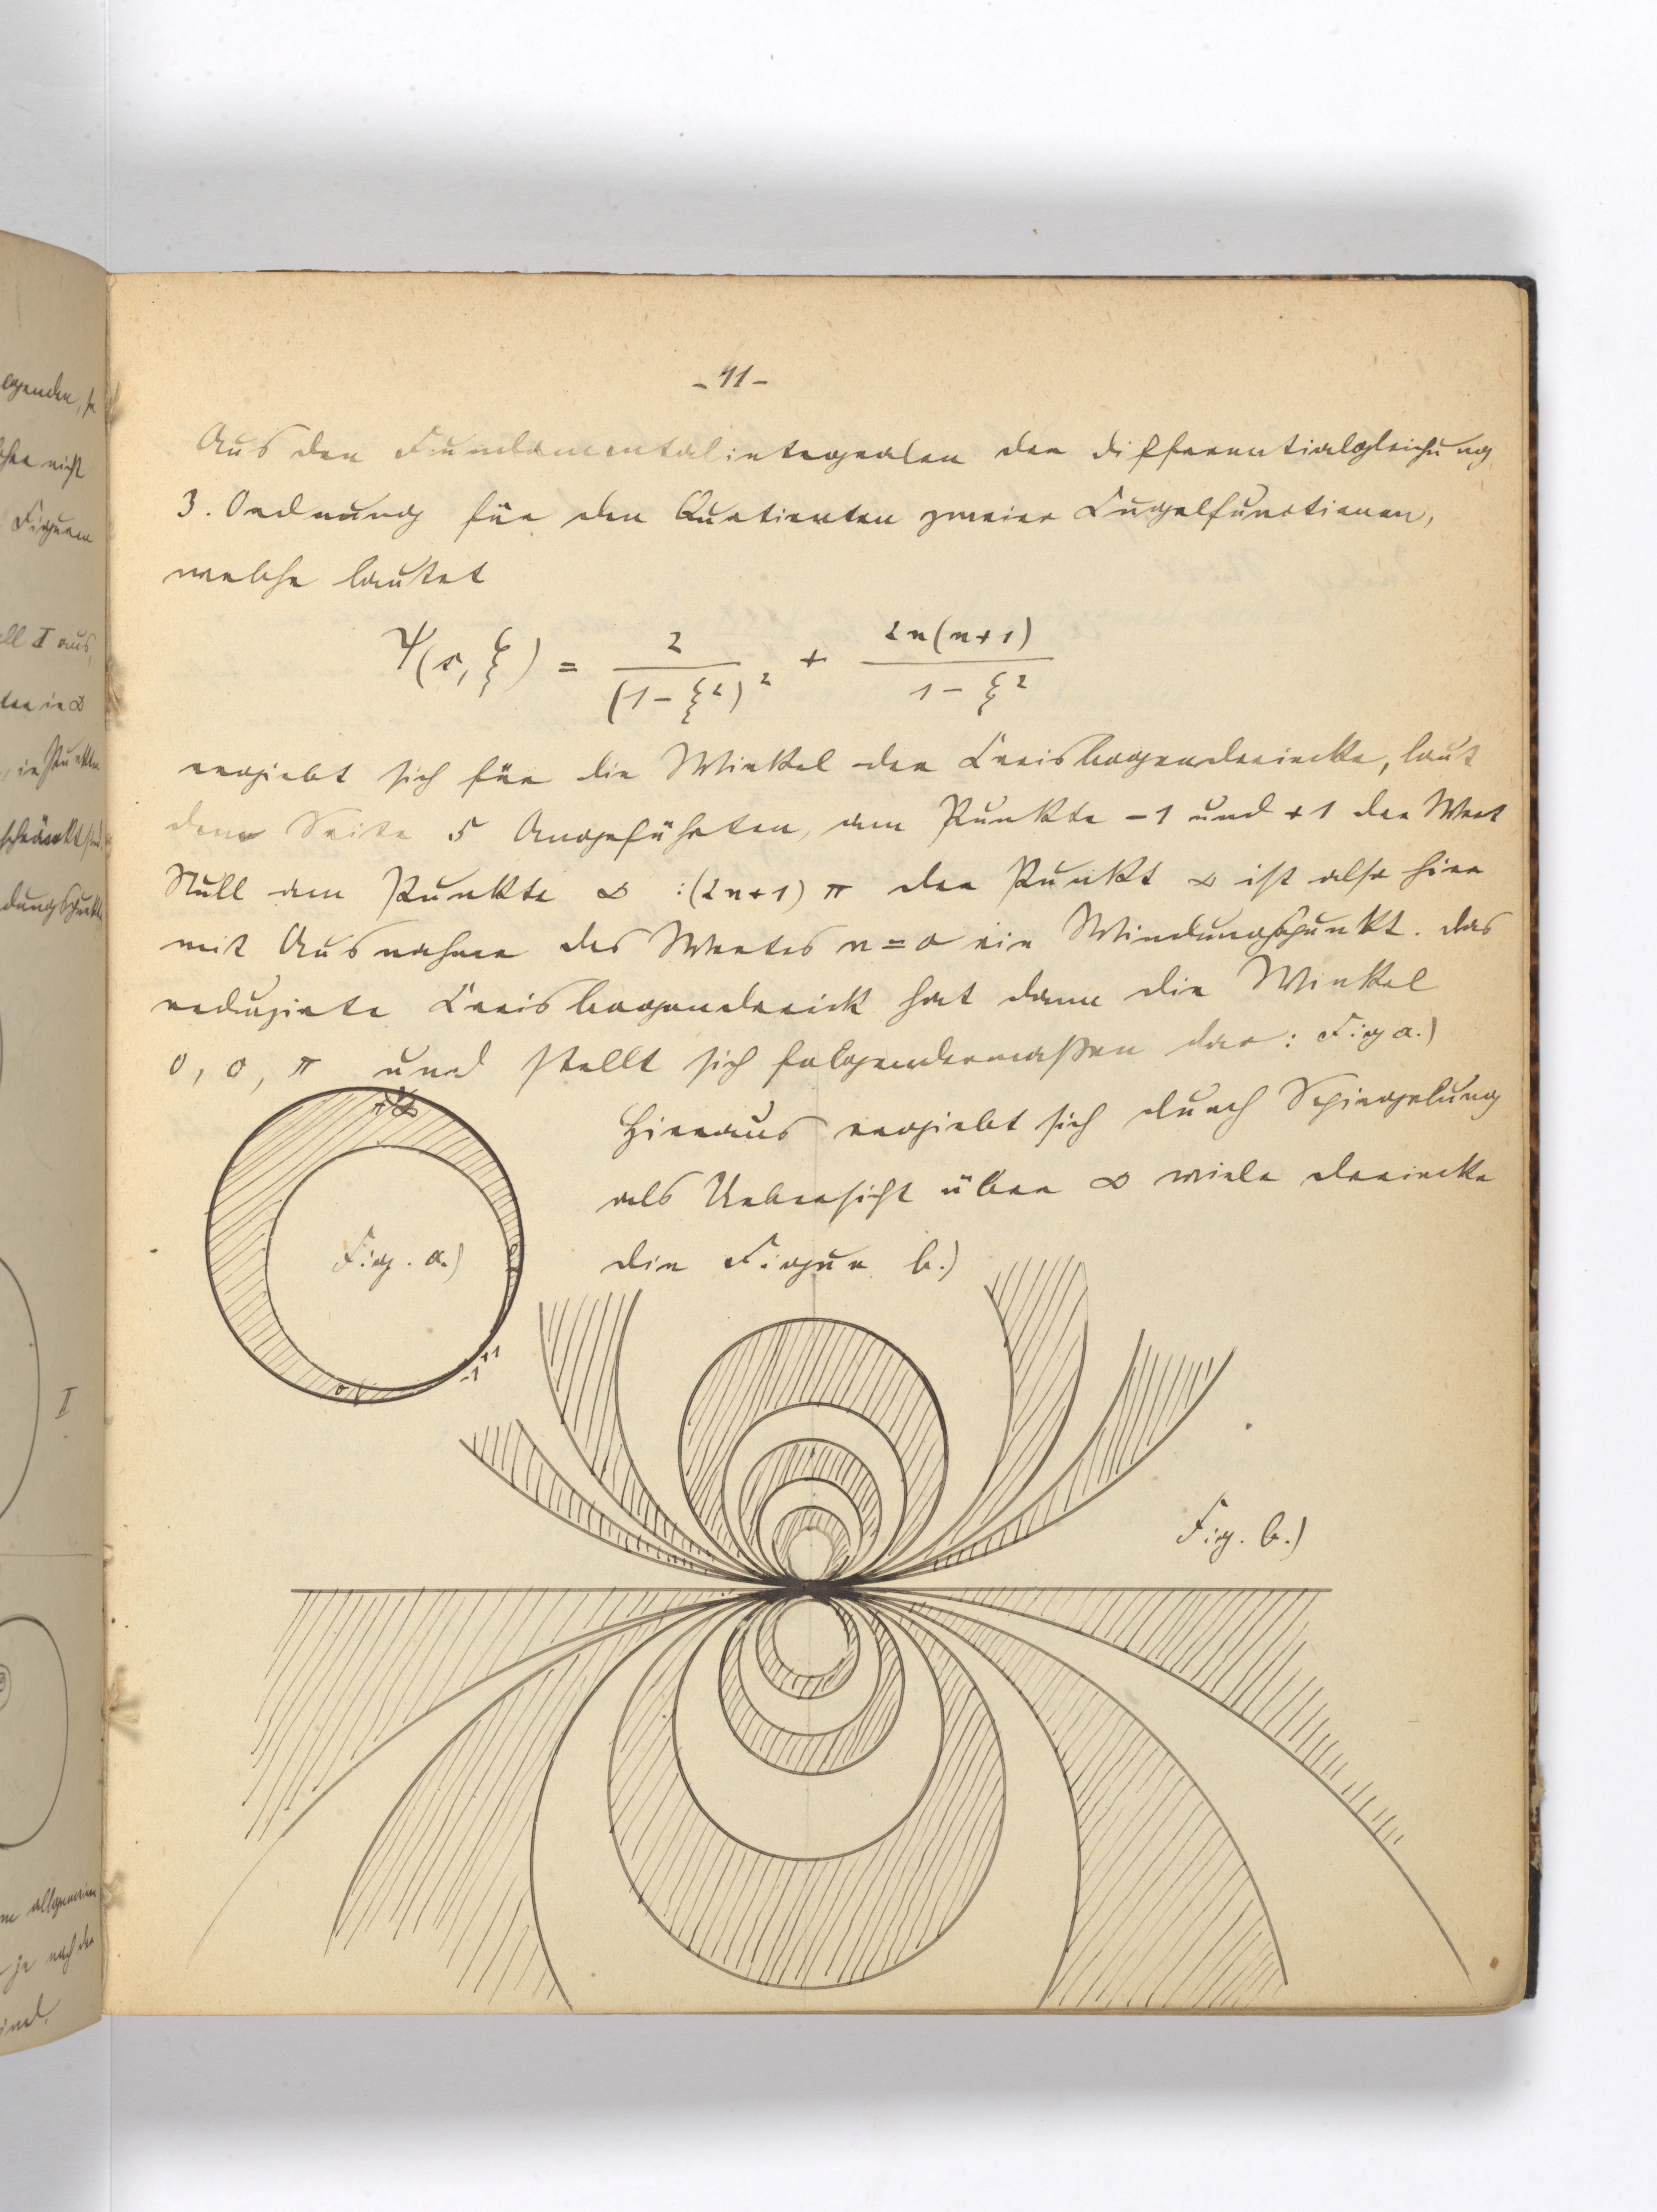 egenden, so
nicht
Figuren
all I aus,
ten in ∞
, in Punkten
schränkt sind,
dungspunkte
I
allgemein
je nach der
sind.
- 41 -
Aus den Fundamentalintegralen der Differentialgleichung
3. Ordnung für den Quotienten zweier Kugelfunctionen,
welche lautet
Ψ(s, ξ) = 2/(1-ξ²)² + 2n(n+1)/(1-ξ²)
ergiebt sich für die Winkel der Kreisbogendreiecke, laut
dem Seite 5 Angeführten, am Punkte -1 und +1 der Wert
Null am Punkte ∞ :(2n+1) π der Punkt ∞ ist also hier
mit Ausnahme des Wertes n=o ein Windungspunkt. Das
reduzirte Kreisbogendreieck hat dann die Winkel
0, 0, π und stellt sich folgendermaßen dar: Fig a.)
π ∞
Hieraus ergiebt sich durch Spiegelung
als Uebersicht über ∞ viele Dreiecke
die Figur b.)
Fig. a.)
0
+1
-1
0
Fig. b.)